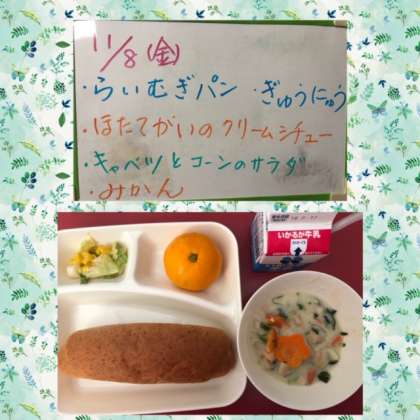 11/8(金)
・らいむぎパン ・ぎゅうにゅう
・ほたてがいのクリームシチュー
・キャベツとコーンのサラダ
・みかん
いかるが牛乳